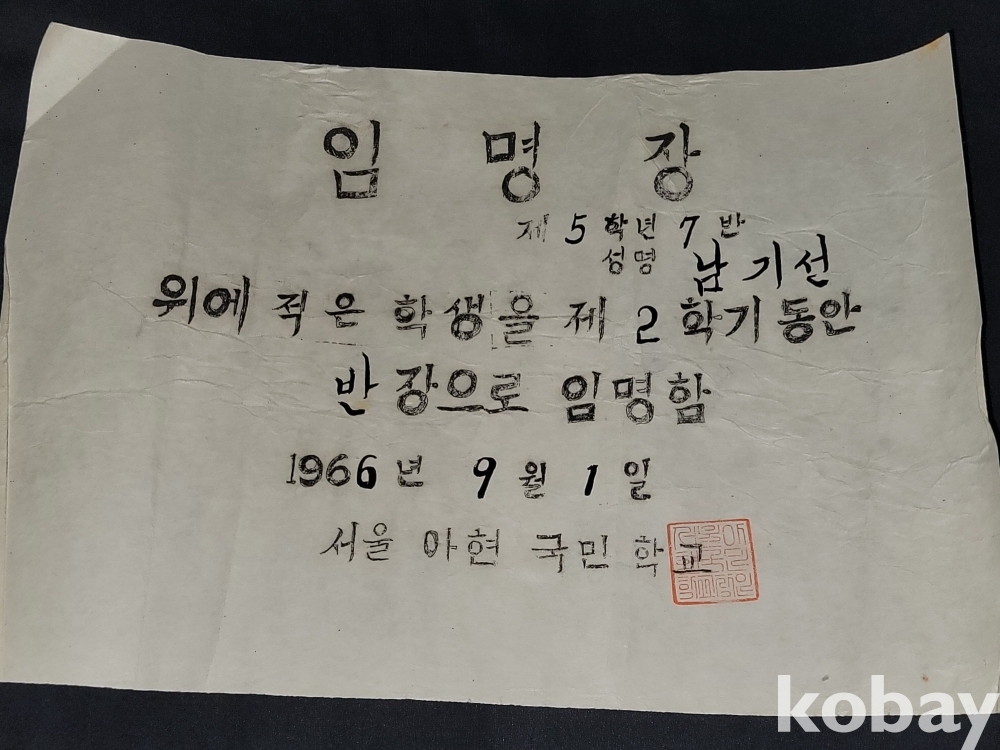 임 명 장
제 5 학년 7 반
성명 남기선
위에 적은 학생을 제 2 학기 동안
반장으로 임명함
1966년 9월 1일
서울 아현 국민 학교
kobay